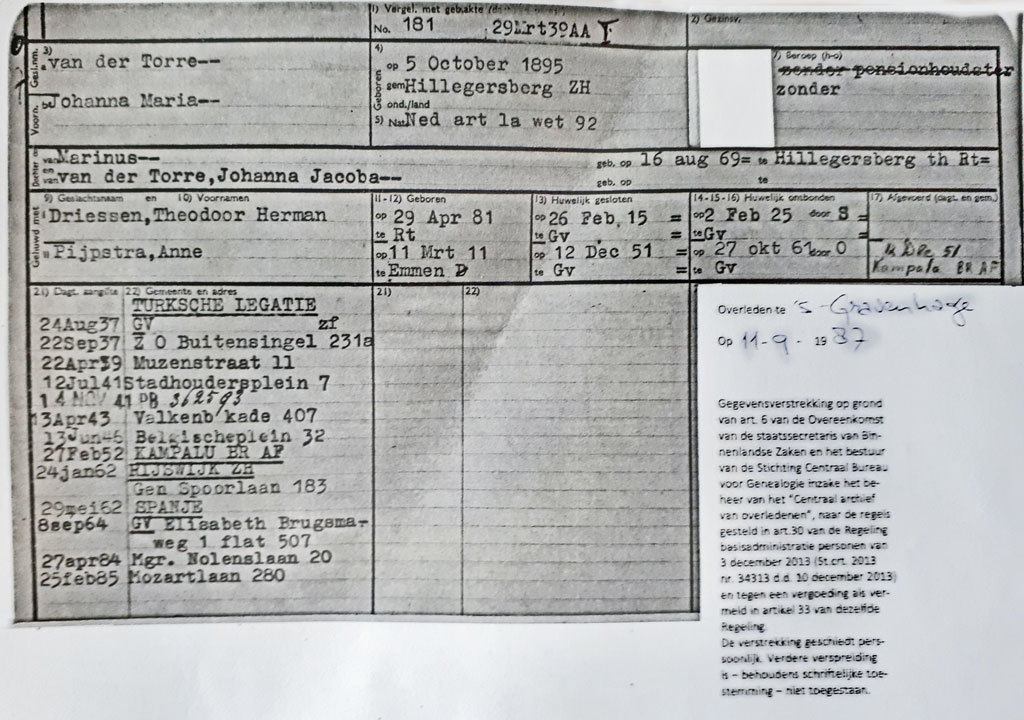 1) Vergel. met geb.akte
No. 181 29Mrt39AA
2) Gezinsv.
Gesl.nm. 3) van der Torre--
Voorn. Johanna Maria--
4) Geboren op 5 October 1895
gem Hillegersberg ZH
ond./land
5) Nat Ned art 1a wet 92
7) Beroep (h-o)
zonder pensionhoudster
zonder
van Marinus-- geb. op 16 aug 69= te Hillegersberg th Rt=
en van van der Torre,Johanna Jacoba-- geb. op te
Gehuwd met
9) Geslachtsnaam en 10) Voornamen
11-12) Geboren
13) Huwelijk gesloten
14-15-16) Huwelijk ontbonden
17) Afgevoerd (dagt. en gem.)
Driessen,Theodoor Herman op 29 Apr 81 op 26 Feb.15 = op 2 Feb 25 door S =
te Rt te Gv = te Gv
Pijpstra,Anne op 11 Mrt 11 op 12 Dec 51 = op 27 okt 61 door O 4 Dec 51
te Emmen D te Gv = te Gv Kampala BR AF
21) Dagt. aangifte 22) Gemeente en adres 21) 22)
TURKSCHE LEGATIE
24Aug37 GV zf
22Sep37 Z O Buitensingel 231a
22Apr39 Muzenstraat 11
12Jul41 Stadhoudersplein 7
14 NOV 41 PB 362593
13Apr43 Valkenb kade 407
13Jun46 Belgischeplein 32
27Feb52 KAMPALU BR AF
24jan62 RIJSWIJK ZH
Gen Spoorlaan 183
29mei62 SPANJE
8sep64 GV Elisabeth Brugsma-
weg 1 flat 507
27apr84 Mgr. Nolenslaan 20
25feb85 Mozartlaan 280
Overleden te 's-Gravenhage
Op 11-9- 1987
Gegevensverstrekking op grond
van art. 6 van de Overeenkomst
van de staatssecretaris van Bin-
nenlandse Zaken en het bestuur
van de Stichting Centraal Bureau
voor Genealogie inzake het be-
heer van het "Centraal archief
van overledenen", naar de regels
gesteld in art.30 van de Regeling
basisadministratie personen van
3 december 2013 (St.crt. 2013
nr. 34313 d.d. 10 december 2013)
en tegen een vergoeding als ver-
meld in artikel 33 van dezelfde
Regeling.
De verstrekking geschiedt pers-
soonlijk. Verdere verspreiding
is – behoudens schriftelijke toe-
stemming – niet toegestaan.